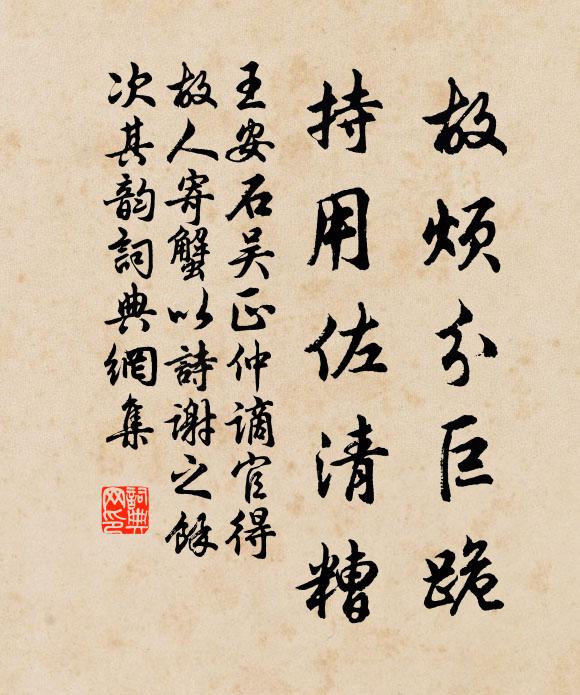 故烦分巨跪
持用佐清糟
王安石吴正仲謫官得
故人寄蟹以詩谢之餘
次其韵詞典網集
詞典
网印